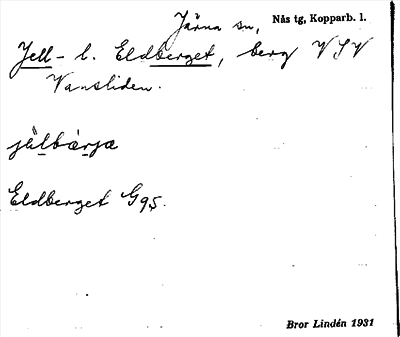 Järna sn, Nås tg, Kopparb. l.
Jell- l. Eldberget, berg VSV
Vansliden.
jä̀lbärjæ
Eldberget G95.
Bror Lindén 1931